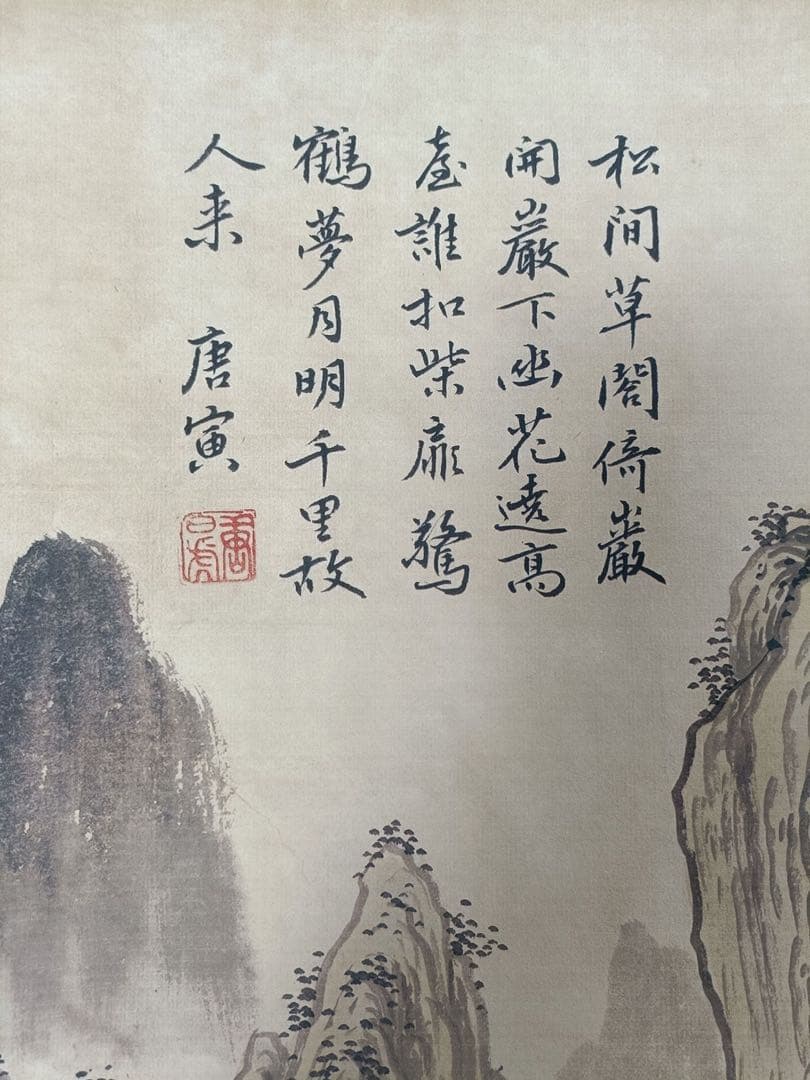 松間草閣倚巖
開巖下幽花遶高
臺誰扣柴扉驚
鶴夢月明千里故
人来 唐寅
唐白虎